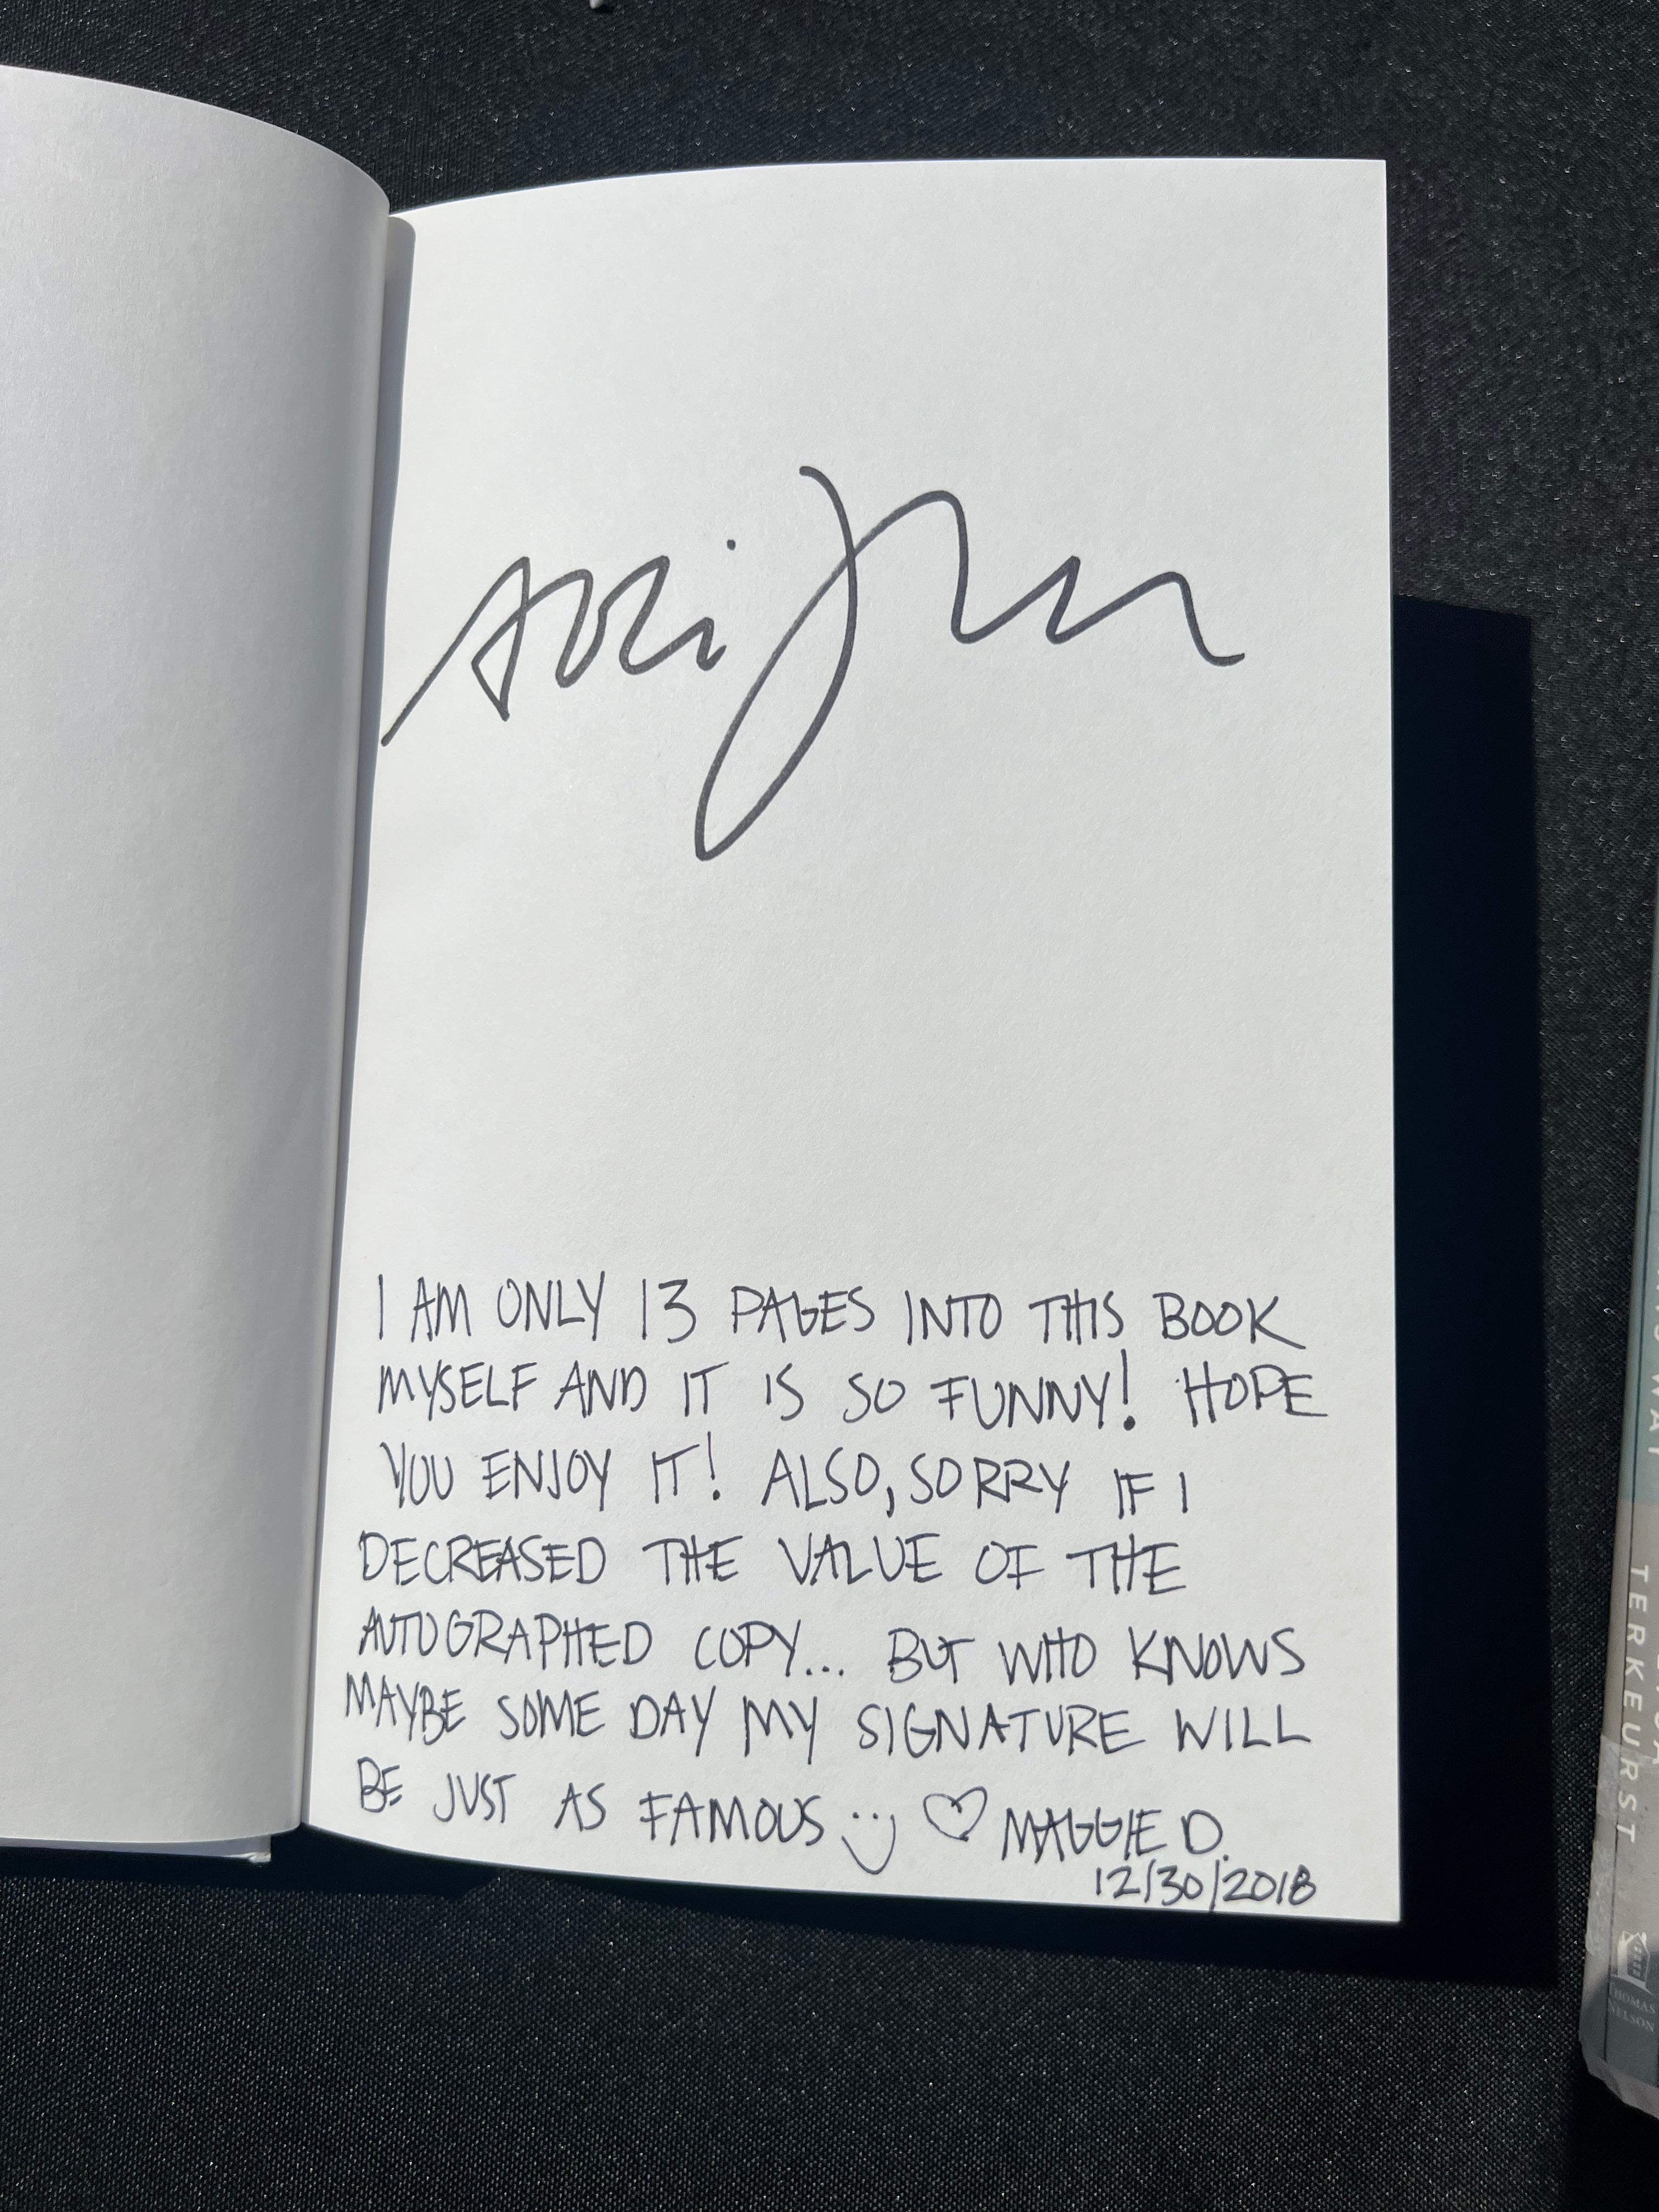 I AM ONLY 13 PAGES INTO THIS BOOK
MYSELF AND IT IS SO FUNNY! HOPE
YOU ENJOY IT! ALSO, SORRY IF I
DECREASED THE VALUE OF THE
AUTOGRAPHED COPY... BUT WHO KNOWS
MAYBE SOME DAY MY SIGNATURE WILL
BE JUST AS FAMOUS :) ♡ MAGGIE D.
12/30/2018
WAY
TERKEURST
THOMAS
NELSON